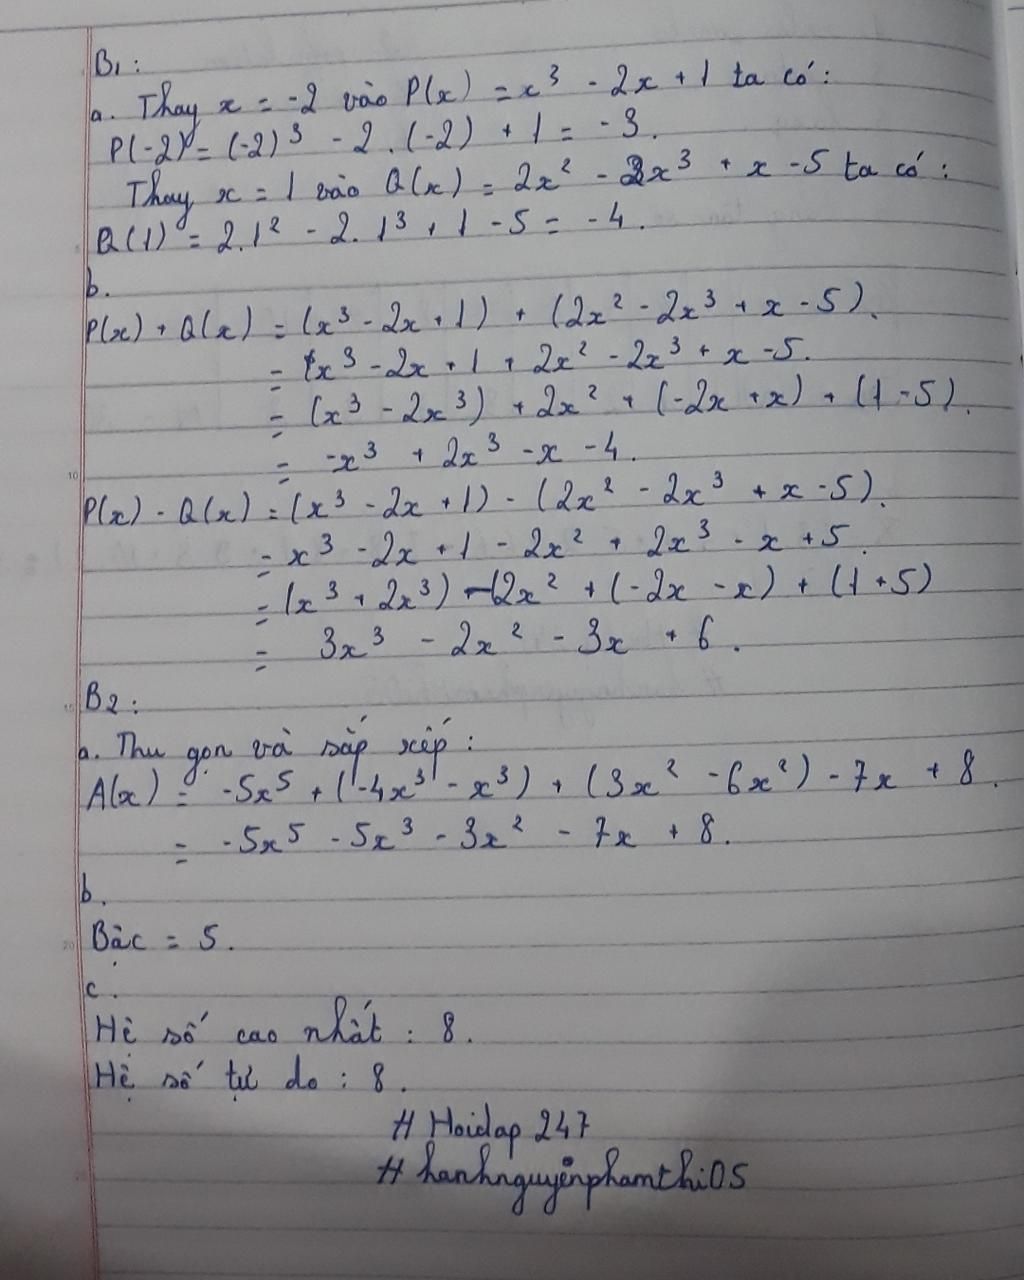 B1:
a. Thay x = -2 vào P(x) = x³ - 2x + 1 ta có:
P(-2) = (-2)³ - 2.(-2) + 1 = -3.
Thay x = 1 vào Q(x) = 2x² - 2x³ + x - 5 ta có:
Q(1) = 2.1² - 2.1³ + 1 - 5 = -4.
b.
P(x) + Q(x) = (x³ - 2x + 1) + (2x² - 2x³ + x - 5).
= x³ - 2x + 1 + 2x² - 2x³ + x - 5.
= (x³ - 2x³) + 2x² + (-2x + x) + (1 - 5).
= -x³ + 2x³ - x - 4.
P(x) - Q(x) = (x³ - 2x + 1) - (2x² - 2x³ + x - 5).
= x³ - 2x + 1 - 2x² + 2x³ - x + 5.
= (x³ + 2x³) - 2x² + (-2x - x) + (1 + 5)
= 3x³ - 2x² - 3x + 6.
B2:
a. Thu gọn và sắp xếp:
A(x) = -5x⁵ + (-4x³ - x³) + (3x² - 6x²) - 7x + 8.
= -5x⁵ - 5x³ - 3x² - 7x + 8.
b.
Bậc = 5.
c.
Hệ số cao nhất: 8.
Hệ số tự do: 8.
# Hoidap 247
# hanhnguyênphamthi05